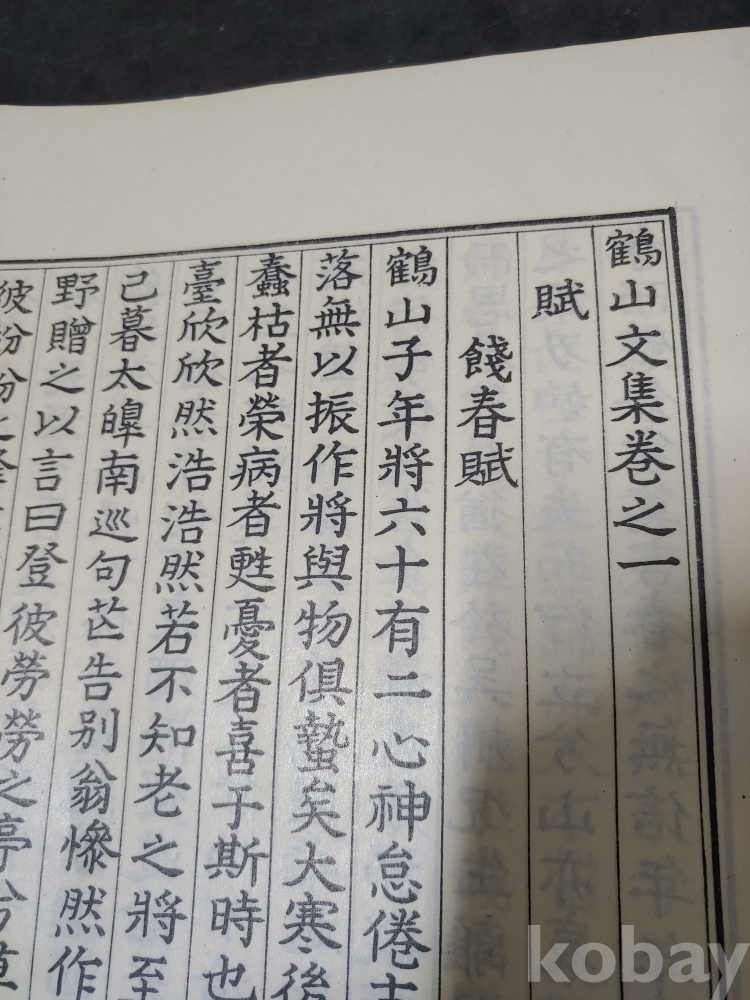 鶴山文集卷之一
賦
餞春賦
鶴山子年將六十有二心神怠倦
落無以振作將與物俱蟄矣大寒後
蠢枯者榮病者甦憂者喜于斯時也
臺欣欣然浩浩然若不知老之將至
已暮太皥南巡句芒告別翁慘然作
野贈之以言曰登彼勞勞之亭兮
彼紛紛之
kobay